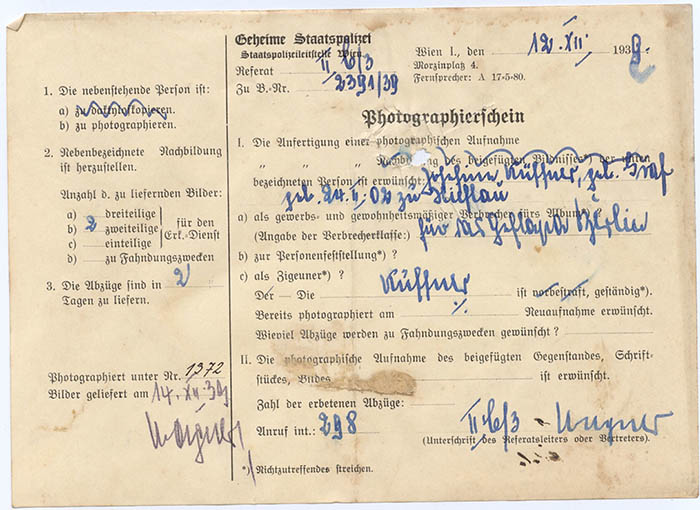 Geheime Staatspolizei
Staatspolizeileitstelle Wien
Referat II
Zu B.-Nr. 2391/39
Wien I., den 12. XII. 1939.
Morzinplatz 4.
Fernsprecher: A 17-5-80.
1. Die nebenstehende Person ist:
a) zu daktyloskopieren.
b) zu photographieren.
2. Nebenbezeichnete Nachbildung
ist herzustellen.
Anzahl d. zu liefernden Bilder:
a) dreiteilige
b) 2 zweiteilige
c) einteilige
für den
Erk.-Dienst
d) zu Fahndungszwecken
3. Die Abzüge sind in 2
Tagen zu liefern.
Photographiert unter Nr. 1372
Bilder geliefert am 14. XII. 39
Wagner
Photographierschein
I. Die Anfertigung einer photographischen Aufnahme
„ „ Nachbildung des beigefügten Bildnisses*) der unten
bezeichneten Person ist erwünscht. Küffner, geb. Graf
geb. 24. zu
a) als gewerbs- und gewohnheitsmäßiger Verbrecher fürs Album*) ?
(Angabe der Verbrecherklasse:) für das
b) zur Personenfeststellung*) ?
c) als Zigeuner*) ?
Der – Die Küffner ist vorbestraft, geständig*).
Bereits photographiert am ./. Neuaufnahme erwünscht.
Wieviel Abzüge werden zu Fahndungszwecken gewünscht ?
II. Die photographische Aufnahme des beigefügten Gegenstandes, Schrift-
stückes, Bildes ist erwünscht.
Zahl der erbetenen Abzüge:
Anruf int.: 298
II Wagner
(Unterschrift des Referatsleiters oder Vertreters).
*) Nichtzutreffendes streichen.